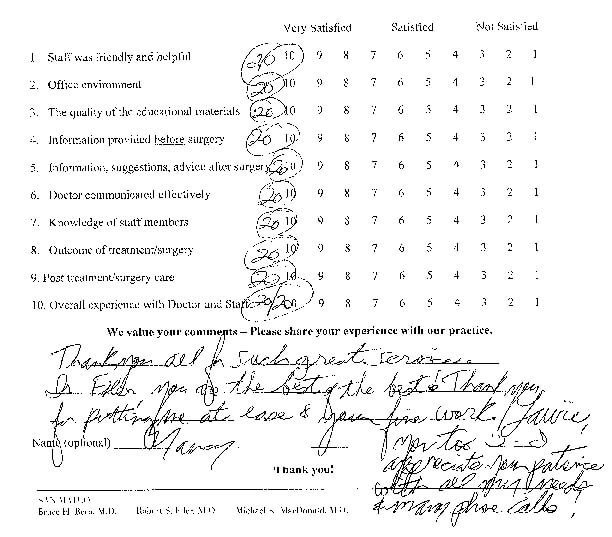 Very Satisfied Satisfied Not Satisfied
1. Staff was friendly and helpful 20 10 9 8 7 6 5 4 3 2 1
2. Office environment 20 10 9 8 7 6 5 4 3 2 1
3. The quality of the educational materials 20 10 9 8 7 6 5 4 3 2 1
4. Information provided before surgery 20 10 9 8 7 6 5 4 3 2 1
5. Information, suggestions, advice after surgery 20 9 8 7 6 5 4 3 2 1
6. Doctor communicated effectively 20 10 9 8 7 6 5 4 3 2 1
7. Knowledge of staff members 20 10 9 8 7 6 5 4 3 2 1
8. Outcome of treatment/surgery 20 10 9 8 7 6 5 4 3 2 1
9. Post treatment/surgery care 20 10 9 8 7 6 5 4 3 2 1
10. Overall experience with Doctor and Staff 20/20 9 8 7 6 5 4 3 2 1
We value your comments – Please share your experience with our practice.
Thank you all for such great service.
Dr Filer, you are the best of the best! Thank you
for putting me at ease & your fine work. Laurie,
Name (optional) Nancy
you too I
appreciate your patience
with all my needs
& many phone calls!
Thank you!
SAN MATEO
Bruce H. Bern, M.D. Robert S. Filer, M.D. Michael K. MacDonald, M.D.